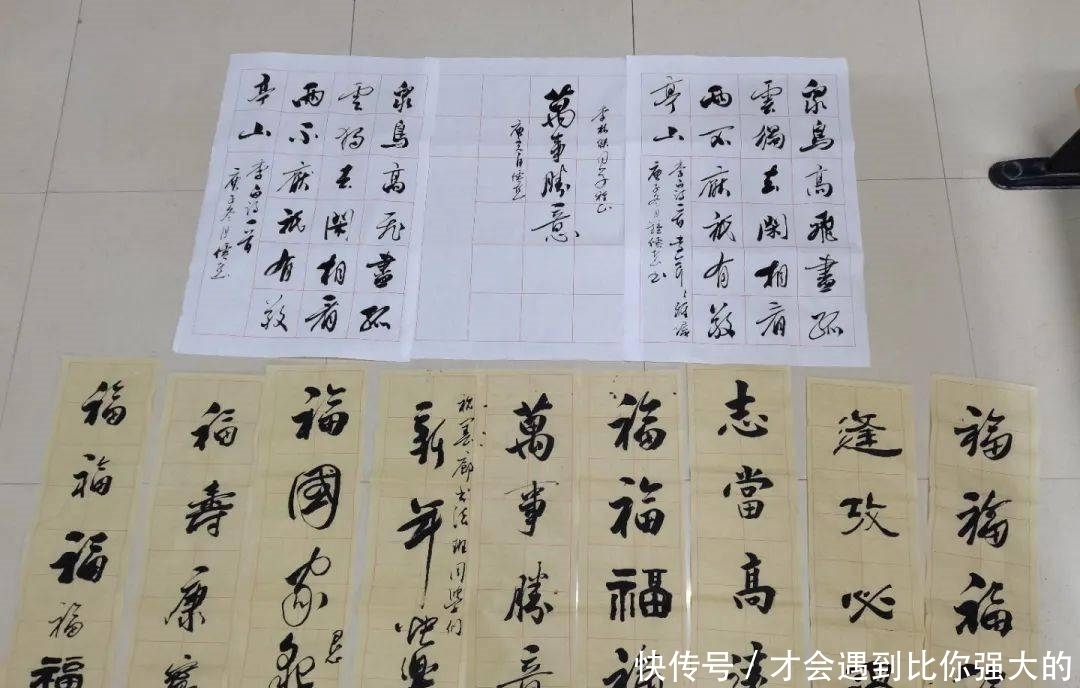 眾鳥高飛盡孤
雲獨去閑相看
兩不厭祇有敬
亭山
李白詩一首
萬事勝意
眾鳥高飛盡孤
雲獨去閑相看
兩不厭祇有敬
亭山
李白詩一首
庚子冬月
福福福
逢攻必
志當高
福福福福
萬事勝意
祝墨廊书法班同學们
新年快樂
福國家
福壽康寧
福福福福福
快传号/才会遇到比你强大的